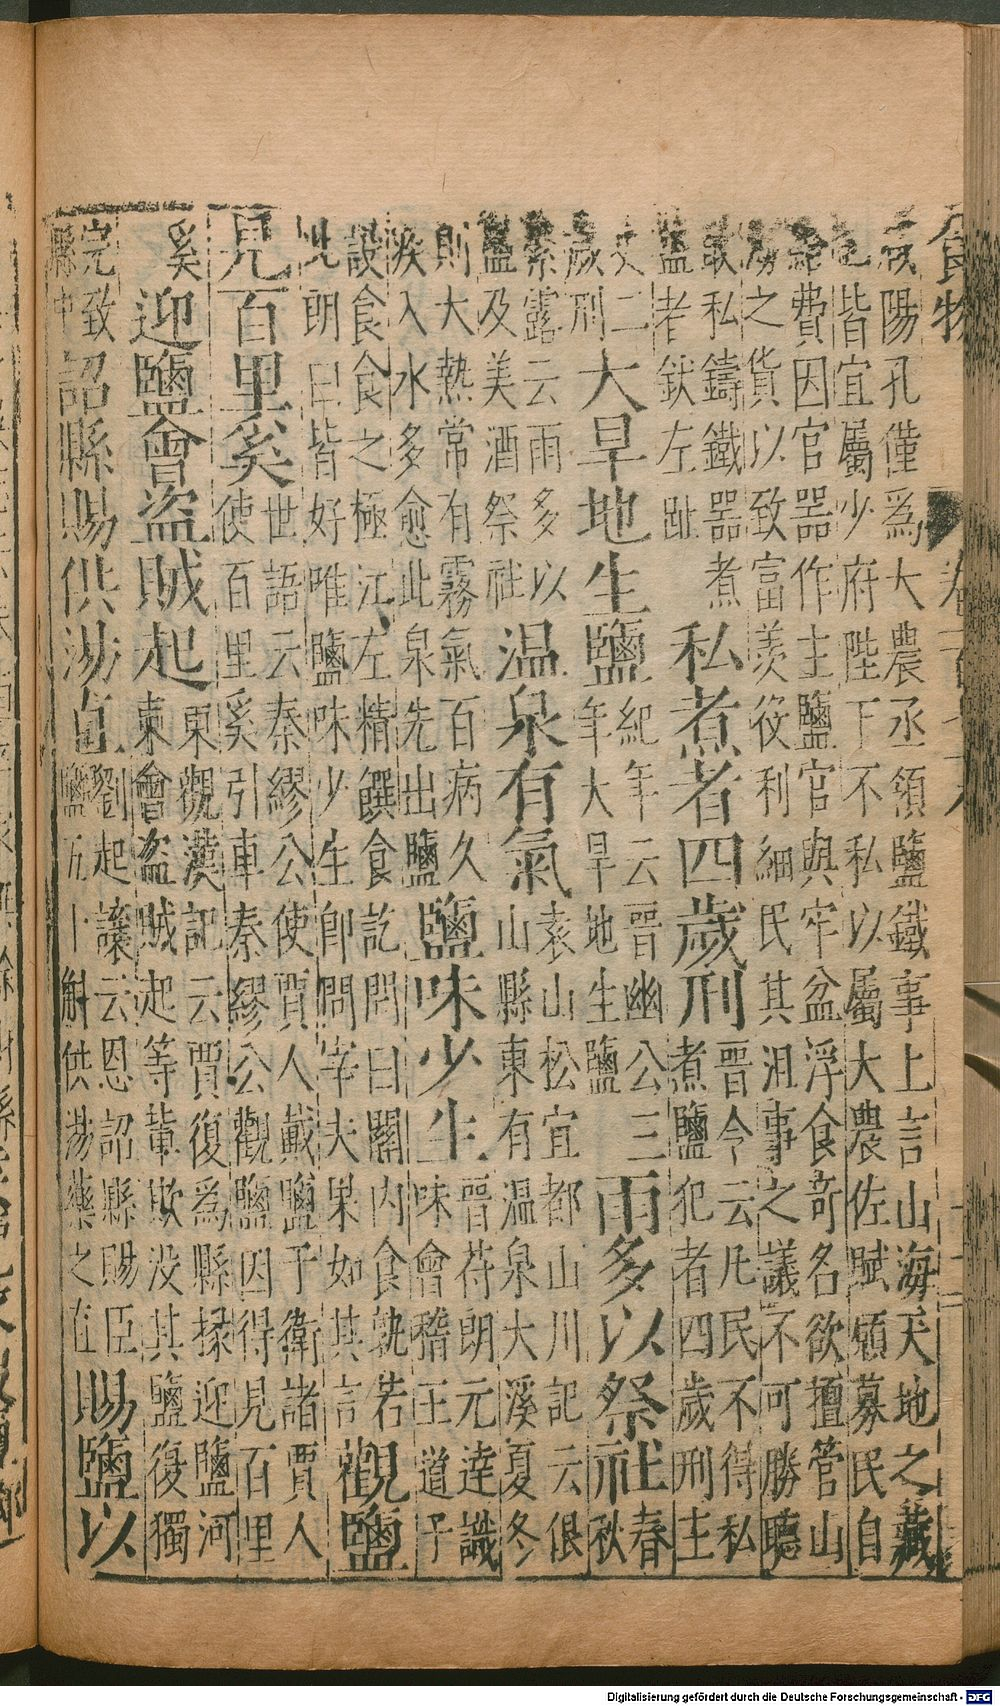 食物 卷一百四十六 十二
咸陽孔僅爲大農丞領鹽鐵事上言山海天地之藏
也皆宜屬少府陛下不私以屬大農佐賦願募民自
給費因官器作主鹽官與牢盆浮食奇名欲擅管山
海之貨以致富羨役利細民其沮事之議不可勝聽
敢私鑄鐵器煮
鹽者釱左趾
私煮者四歲刑
晋令云凡民不得私
煮鹽犯者四歲刑主
史二
歲刑
大旱地生鹽
紀年云晉幽公三
年大旱地生鹽
雨多以祭社
春
秋
繁露云雨多以
鹽及美酒祭社
温泉有氣
袁山松宜都山川記云佷
山縣東有温泉大溪夏冬
則大熱常有霧氣百病久
疾入水多愈此泉先出鹽
鹽味少生
晉苻朗元達識
味會稽王道子
設食食之極江左精饌食訖問曰關内食孰若
此朗曰皆好唯鹽味少生卽問宰夫果如其言
觀鹽
見百里奚
世語云秦繆公使賈人戴鹽于衛諸賈人
使百里奚引車秦繆公觀鹽因得見百里
奚
迎鹽會盗賊起
東觀漢記云賈復爲縣掾迎鹽河
東會盗賊起等輩欺没其鹽復獨
完致
縣中
詔縣賜供湯直
劉起讓云恩詔縣賜臣
鹽五十斛供湯藥之直
賜鹽以
Digitalisierung gefördert durch die Deutsche Forschungsgemeinschaft - DFG